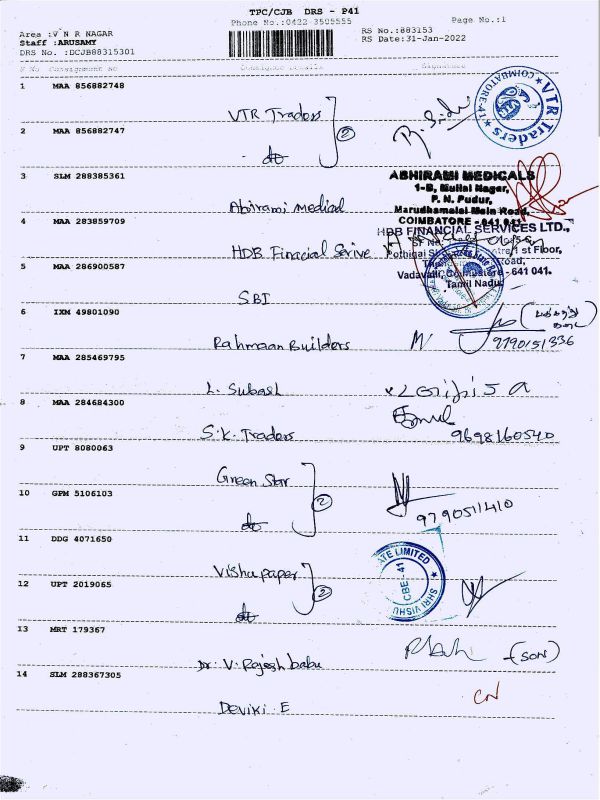 TPC/CJB DRS - P41
Phone No.:0422 3505555
Page No.:1
Area :V N R NAGAR
RS No.:883153
Staff :ARUSAMY
RS Date:31-Jan-2022
DRS No. :DCJB88315301
Consignment No
Signature
1 MAA 856882748
VTR Traders
COIMBATORE-41 ★ VTR Traders ★
2 MAA 856882747
do
2
3 SLM 288385361
Abirami Medical
ABHIRAMI MEDICALS
1-B, Mullai Nagar,
P. N. Pudur,
Marudhamalai Main Road,
COIMBATORE - 641 041.
4 MAA 283859709
HDB Finacial Serive
HDB FINANCIAL SERVICES LTD.,
1 st Floor,
Road,
Vadavalli, Coimbatore - 641 041.
Tamil Nadu
5 MAA 286900587
SBI
6 IXM 49801090
Rahmaan Builders
9790151336
7 MAA 285469795
L. Subash
8 MAA 284684300
S.K. Traders
9698160540
9 UPT 8080063
Green Star
10 GPM 5106103
do
2
9790511410
11 DDG 4071650
Vishu paper
ATE LIMITED ★ SHRI VISHU
CBE-41
12 UPT 2019065
do
2
13 MRT 179367
Dr. V. Rajesh babu
(SON)
14 SLM 288367305
Deviki E